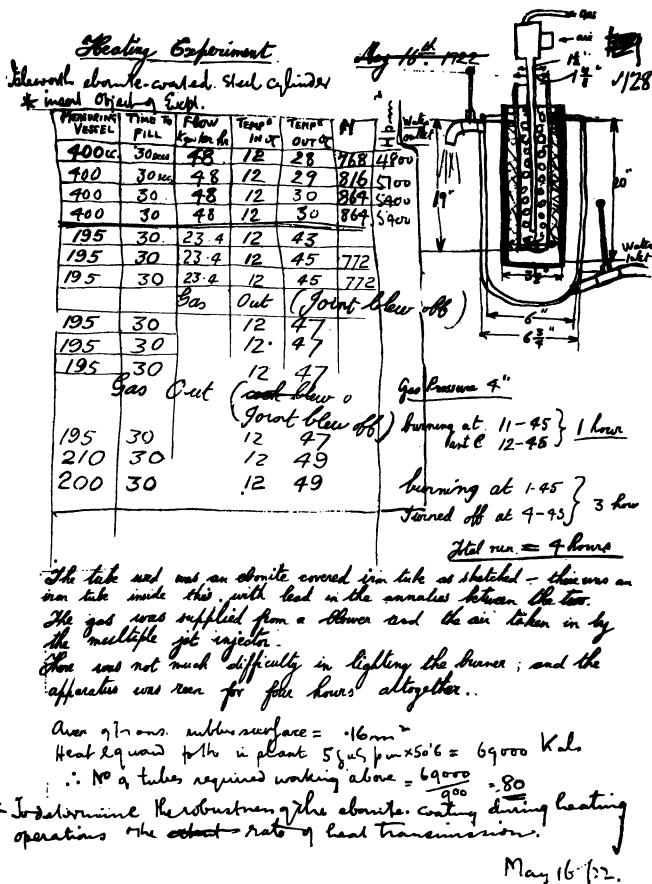 Heating Experiment
May 16th 1922
Isleworth ebonite-coated steel cylinder
* insert Object of Expt.
MEASURING VESSEL TIME TO FILL FLOW Kgs per hr TEMP° IN °C TEMP° OUT °C
400cc 30secs 48 12 28 768 4800
400 30secs 48 12 29 816 5100
400 30 48 12 30 864 5400
400 30 48 12 30 864 5400
195 30 23.4 12 43
195 30 23.4 12 45 772
195 30 23.4 12 45 772
Gas Out (Joint blew off)
195 30 12 47
195 30 12. 47
195 30 12 47
Gas Out (blew o
Joint blew off)
195 30 12 47
210 30 12 49
200 30 12 49
gas
air
128
Water outlet
19"
20"
Water Inlet
6"
6 3/4"
Gas Pressure 4"
burning at 11-45
12-45
1 hour
burning at 1-45
Turned off at 4-45
3 hou
Total run = 4 hours
The tube used was an ebonite covered iron tube as sketched - there was an
iron tube inside this, with lead in the annulus between the two.
The gas was supplied from a blower and the air taken in by
the multiple jet injector.
There was not much difficulty in lighting the burner; and the
apparatus was run for four hours altogether..
Area of trans. rubber surface = .16m²
Heat required in plant = 69000 Kals
∴ No of tubes required working above = 69000/900 = 80
To determine the robustness of the ebonite coating during heating
operations the rate of heat transmission.
May 16/22.